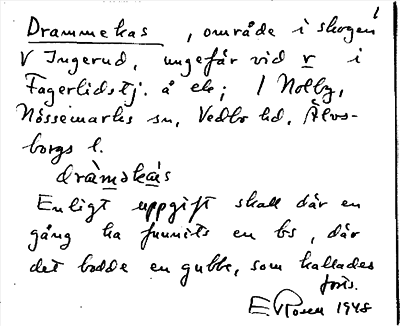 1
Drammekas, område i skogen
V Ingerud, ungefär vid v i
Fagerlidstj. å ek; / Nolby,
Nössemarks sn, Vedbo hd, Älvs-
borgs l.
dràməkás
Enligt uppgift skall där en
gång ha funnits en bs, där
det bodde en gubbe, som kallades
forts.
E Rosen 1948